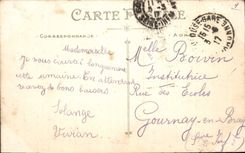 CARTE POSTALE
CORRESPONDANCE
Mademoiselle
Je vous écrirai longuement
cette semaine. En attendant
recevez de bons baisers
Solange
Vivian
Melle Boivin
Institutrice
Rue des Ecoles
Gournay-en-Bray